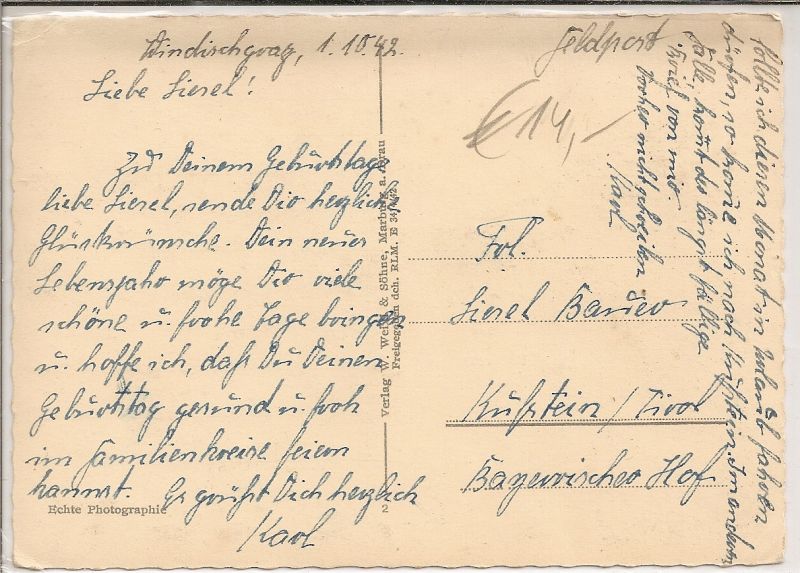 Windischgraz, 1.10.42.
Liebe Liesel!
Zu Deinem Geburtstage
liebe Liesel, sende Dir herzlich
Glückwünsche. Dein neues
Lebensjahr möge Dir viele
schöne u. frohe Tage bringen
u. hoffe ich, daß Du Deinen
Geburtstag gesund u. froh
im Familienkreise feiern
kannst. Es grüßt Dich herzlich
Karl
Echte Photographie
2
Verlag W. & Söhne, Marburg a. Drau
Freigegeben dch. RLM. E 34/42
Feldpost
€ 14,-
Frl.
Liesel Bauer
Kufstein / Tirol
Bayerrischer Hof
Sollte ich diesen Monat in Urlaub fahren
dürfen, so komme ich nach Kufstein. Im andern
Falle, kommt der längst fällige
Brief von mir.
Vorher nicht schreiben
Karl